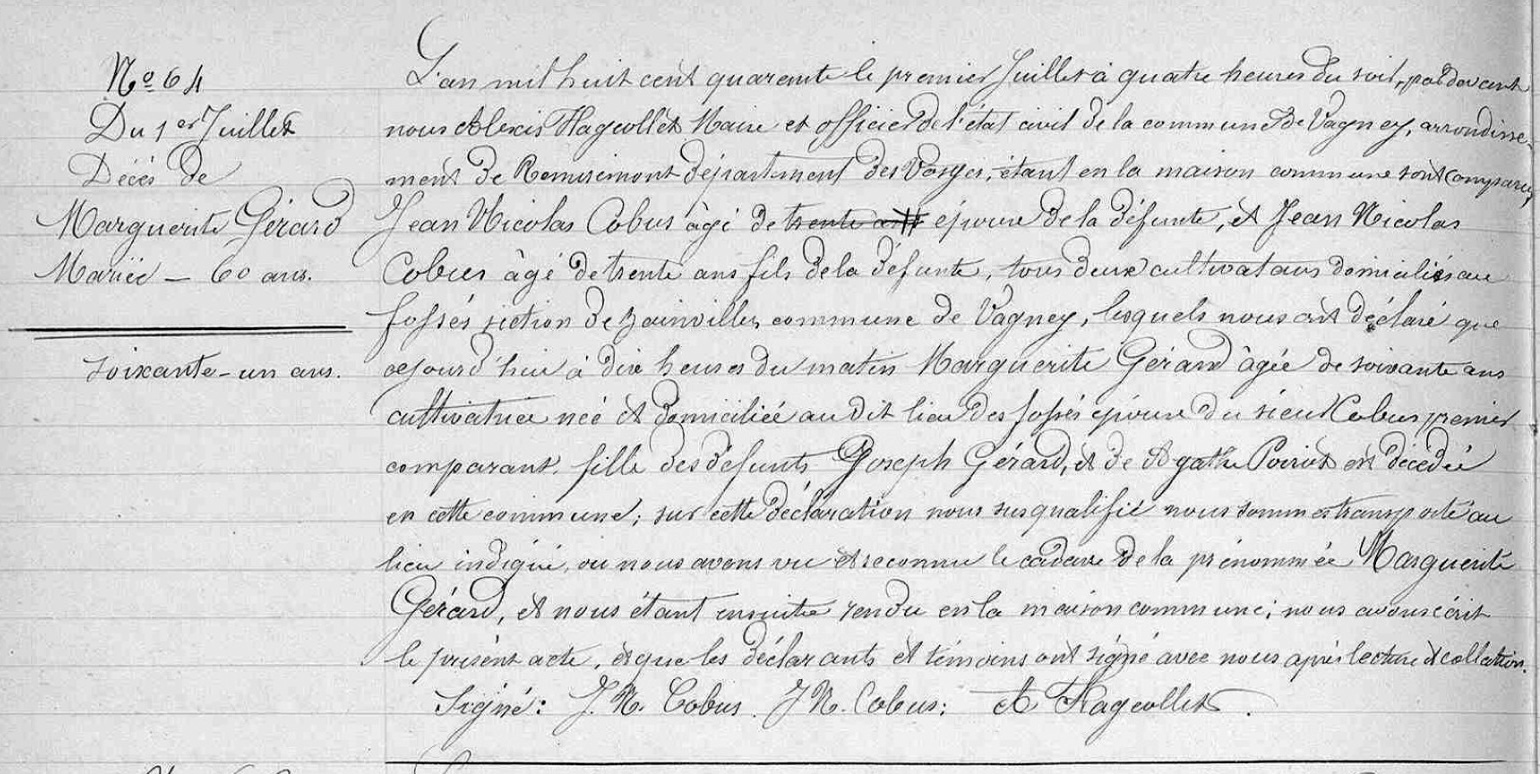 No 64
Du 1er Juillet
Décès de
Marguerite Gérard
Mariée — 60 ans.
soixante-un ans.
L'an mil huit cent quarante le premier Juillet à quatre heures du soir, par devant
nous Alexis Hageollet Maire et officier de l'état civil de la commune de Vagney, arrondisse-
ment de Remiremont département des Vosges, étant en la maison commune sont comparus,
Jean Nicolas Cobus âgé de trente ans époux de la défunte, et Jean Nicolas
Cobus âgé de trente ans fils de la défunte, tous deux cultivateurs domiciliés au
fossés section de Zainvillers commune de Vagney, lesquels nous ont déclaré que
cejourd'hui à dix heures du matin Marguerite Gérard âgée de soixante ans
cultivatrice née et domiciliée au dit lieu des fossés épouse du sieur Cobus premier
comparant, fille des défunts Joseph Gérard, et de Agathe Poirot est décédée
en cette commune; sur cette déclaration nous susqualifié nous sommes transporté au
lieu indiqué, ou nous avons vu et reconnu le cadavre de la prénommée Marguerite
Gérard, et nous étant ensuite rendu en la maison commune; nous avons écrit
le présent acte, et que les déclarants et témoins ont signé avec nous après lecture et collation.
Signé: J. N. Cobus. J N. Cobus; A Hageollet.